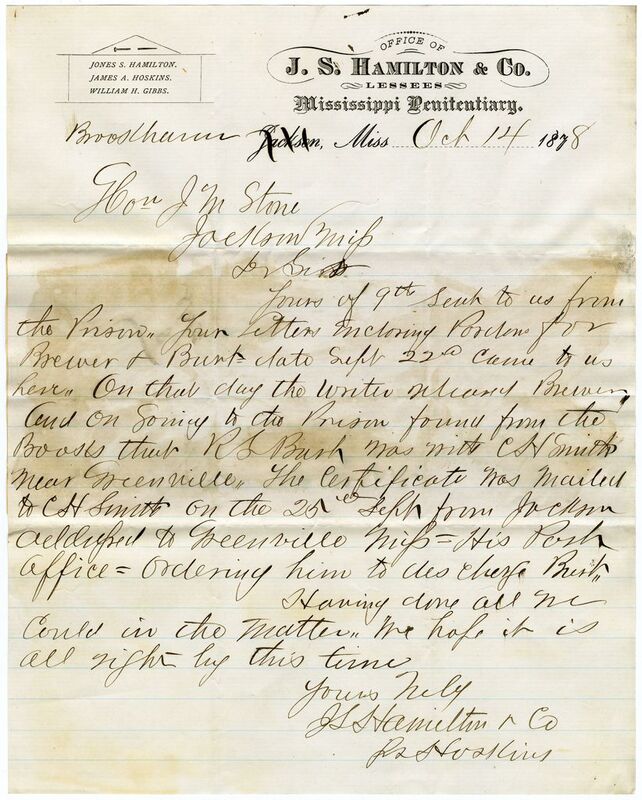 JONES S. HAMILTON.
JAMES A. HOSKINS.
WILLIAM H. GIBBS.
OFFICE OF
J. S. HAMILTON & CO.
LESSEES
Mississippi Penitentiary.
Brookhaven Jackson, Miss Oct 14 1878
Hon J M Stone
Jackson Miss
Dr Sir
Yours of 9th sent to us from
the Prison,, Your letters inclosing Pardons for
Brewer & Burt date Sept 22d came to us
here,, On that day the writer released Brewer,,
And on going to the Prison found from the
Books that R S Burt was with C H Smith
near Greenville,, The Certificate was mailed
to C H Smith on the 25 Sept from Jackson
addressed to Greenville Miss = His Post
Office = Ordering him to des charge Burt,,
Having done all we
Could in the matter,, We hope it is
all right by this time
Yours Truly
J S Hamilton & Co
Hoskins